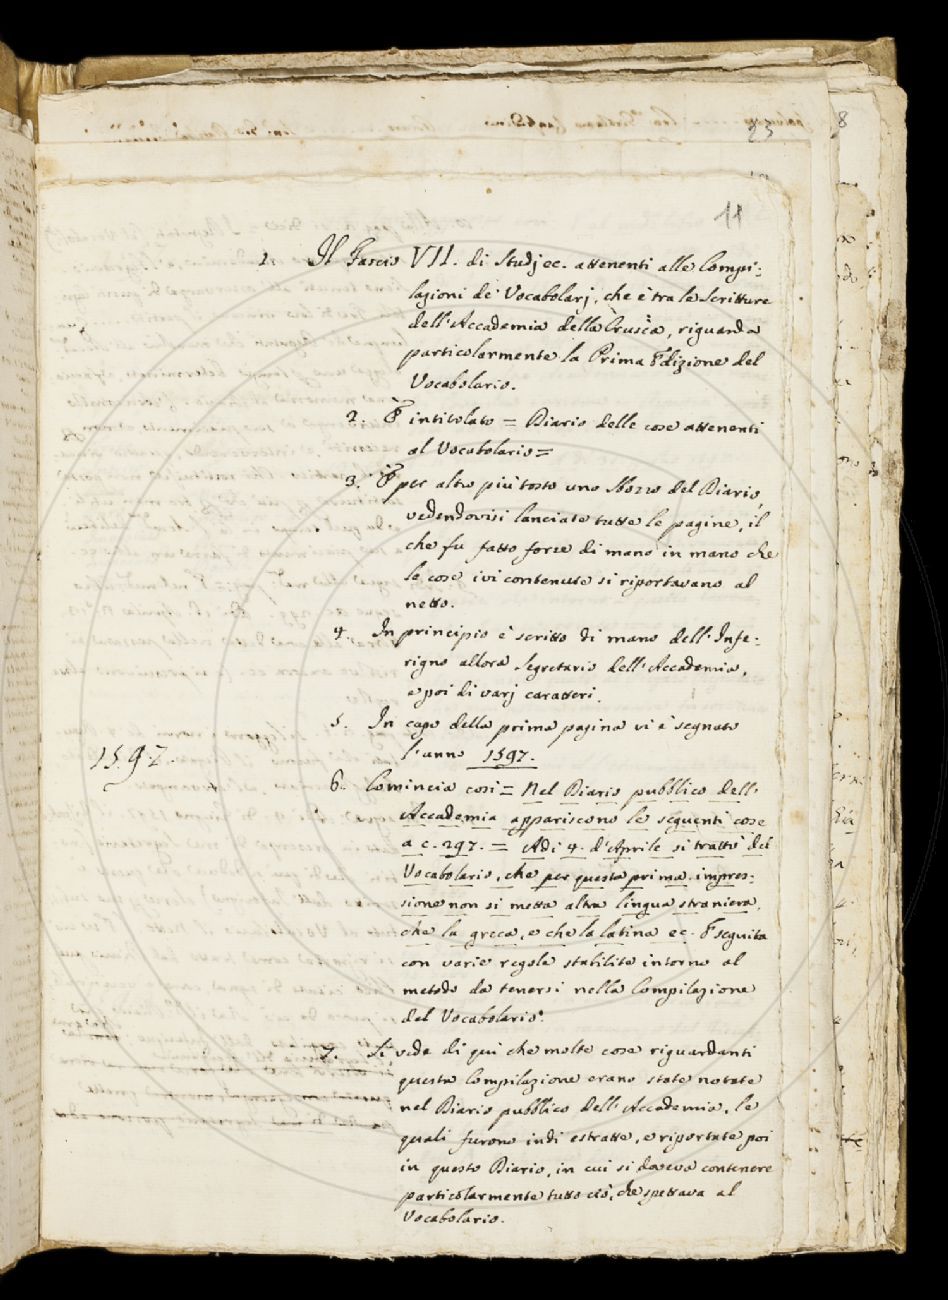 23
8
11
1. Il Fascio VII. di Studj ec. attenenti alle Compi:
lazioni de' Vocabolarj, che è tra le Scritture
dell'Accademia della Crusca, riguarda
particolarmente la Prima Edizione del
Vocabolario.
2. È intitolato = Diario delle cose attenenti
al Vocabolario =
3. È per altro più tosto uno Sbozzo del Diario,
vedendovisi lanciate tutte le pagine, il
che fu fatto forse di mano in mano che
le cose ivi contenute si riportavano al
netto.
4. In principio è scritto di mano dell'Infe:
rigno allora Segretario dell'Accademia,
e poi di varj caratteri.
5. In capo della prima pagina vi è segnato
l'anno 1597.
1597.
6. Comincia così = Nel Diario pubblico dell'
Accademia appariscono le seguenti cose
a c. 297. = Adi 4. d'Aprile si trattò del
Vocabolario, che per questa prima impres:
sione non si metta altra lingua straniera,
che la greca, e che la latina ec. E seguita
con varie regole stabilite intorno al
metodo da tenersi nella Compilazione
del Vocabolario.
7. Si vede di qui che molte cose riguardanti
questa Compilazione erano state notate
nel Diario pubblico dell'Accademia, le
quali furono indi estratte, e riportate poi
in questo Diario, in cui si doveva contenere
particolarmente tutto ciò, che spettava al
Vocabolario.